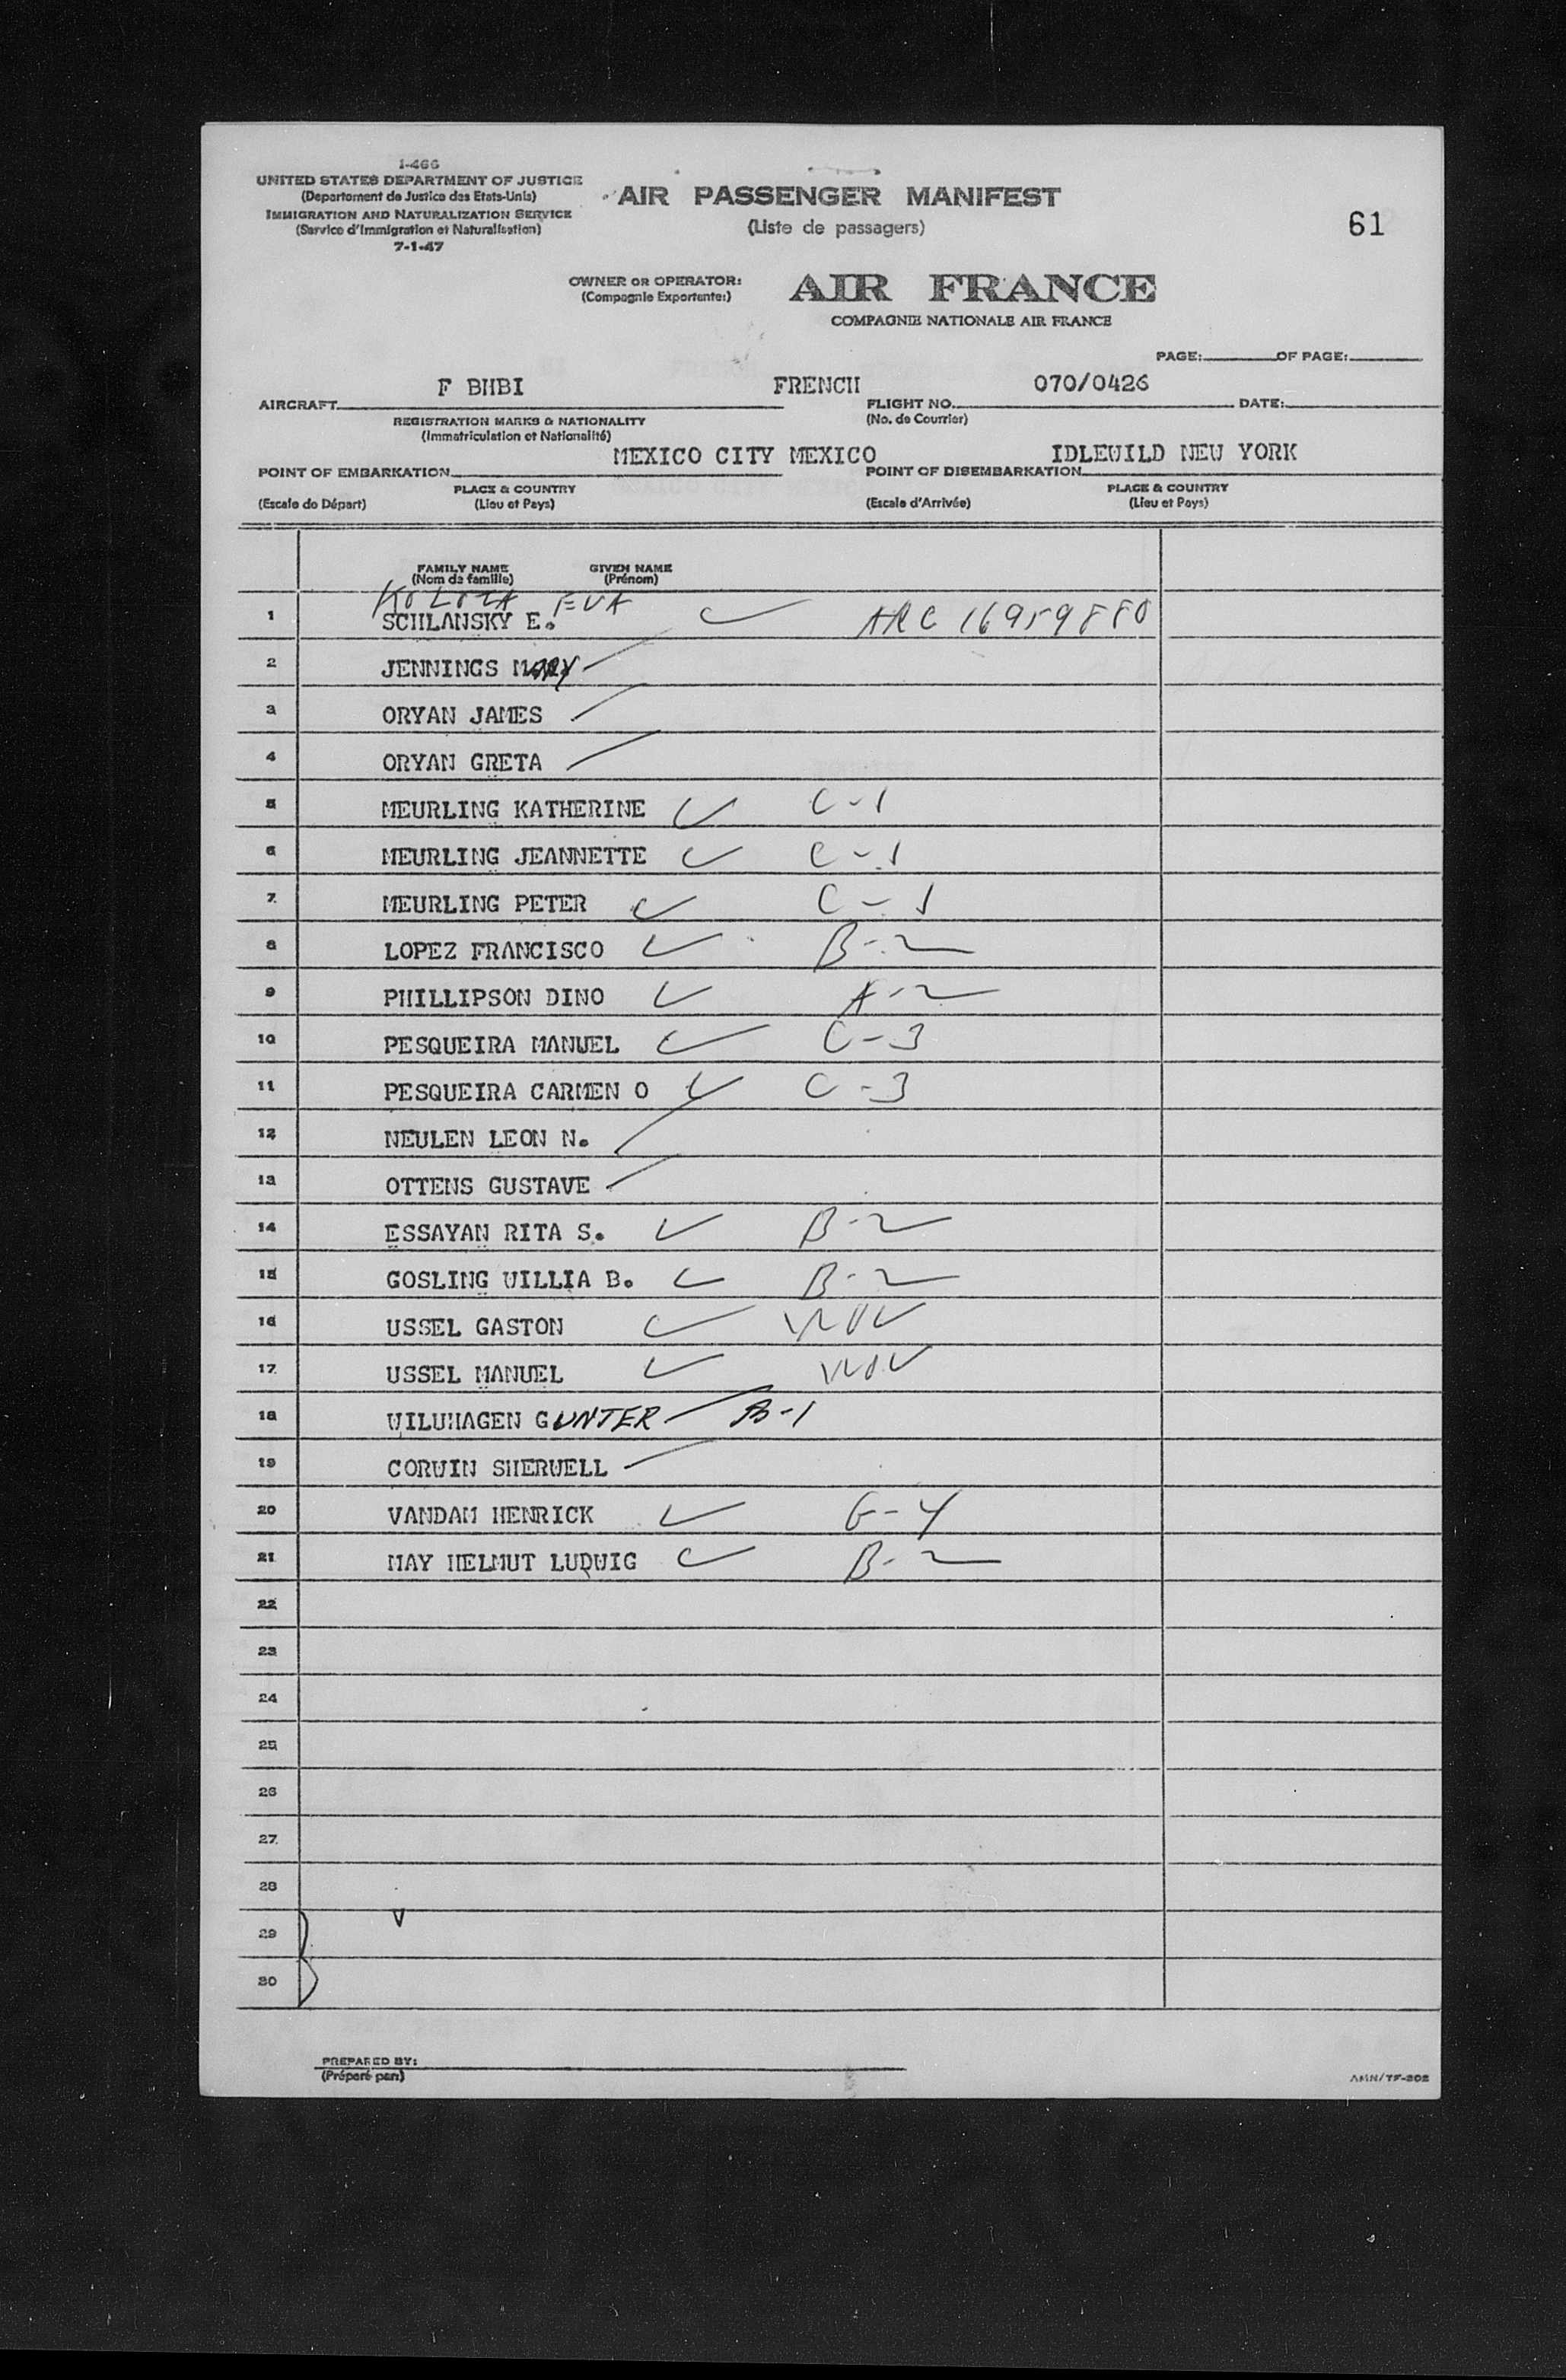 I-466
UNITED STATES DEPARTMENT OF JUSTICE
(Departement de Justice des Etats-Unis)
IMMIGRATION AND NATURALIZATION SERVICE
(Service d'Immigration et Naturalisation)
7-1-47
AIR PASSENGER MANIFEST
(Liste de passagers)
61
OWNER OR OPERATOR: AIR FRANCE
(Compagnie Exportante:)
COMPAGNIE NATIONALE AIR FRANCE
PAGE: OF PAGE:
AIRCRAFT F BHBI FRENCH FLIGHT NO. 070/0426 DATE:
REGISTRATION MARKS & NATIONALITY (No. de Courrier)
(Immatriculation et Nationalité)
POINT OF EMBARKATION MEXICO CITY MEXICO POINT OF DISEMBARKATION IDLEWILD NEW YORK
PLACE & COUNTRY PLACE & COUNTRY
(Escale de Départ) (Lieu et Pays) (Escale d'Arrivée) (Lieu et Pays)
FAMILY NAME GIVEN NAME
(Nom de famille) (Prénom)
EVA
1 SCHLANSKY E. ✓ ARC 16959880
2 JENNINGS MARY
3 ORYAN JAMES
4 ORYAN GRETA
5 MEURLING KATHERINE ✓ C-1
6 MEURLING JEANNETTE ✓ C-1
7 MEURLING PETER ✓ C-1
8 LOPEZ FRANCISCO ✓ B-2
9 PHILLIPSON DINO ✓ A-2
10 PESQUEIRA MANUEL ✓ C-3
11 PESQUEIRA CARMEN O ✓ C-3
12 NEULEN LEON N.
13 OTTENS GUSTAVE
14 ESSAYAN RITA S. ✓ B-2
15 GOSLING WILLIA B. ✓ B-2
16 USSEL GASTON ✓
17 USSEL MANUEL ✓
18 WILUHAGEN GUNTER B-1
19 CORWIN SHERWELL
20 VANDAM HENRICK ✓ G-4
21 MAY HELMUT LUDWIG ✓ B-2
22
23
24
25
26
27
28
29
30
PREPARED BY:
(Préparé par:)